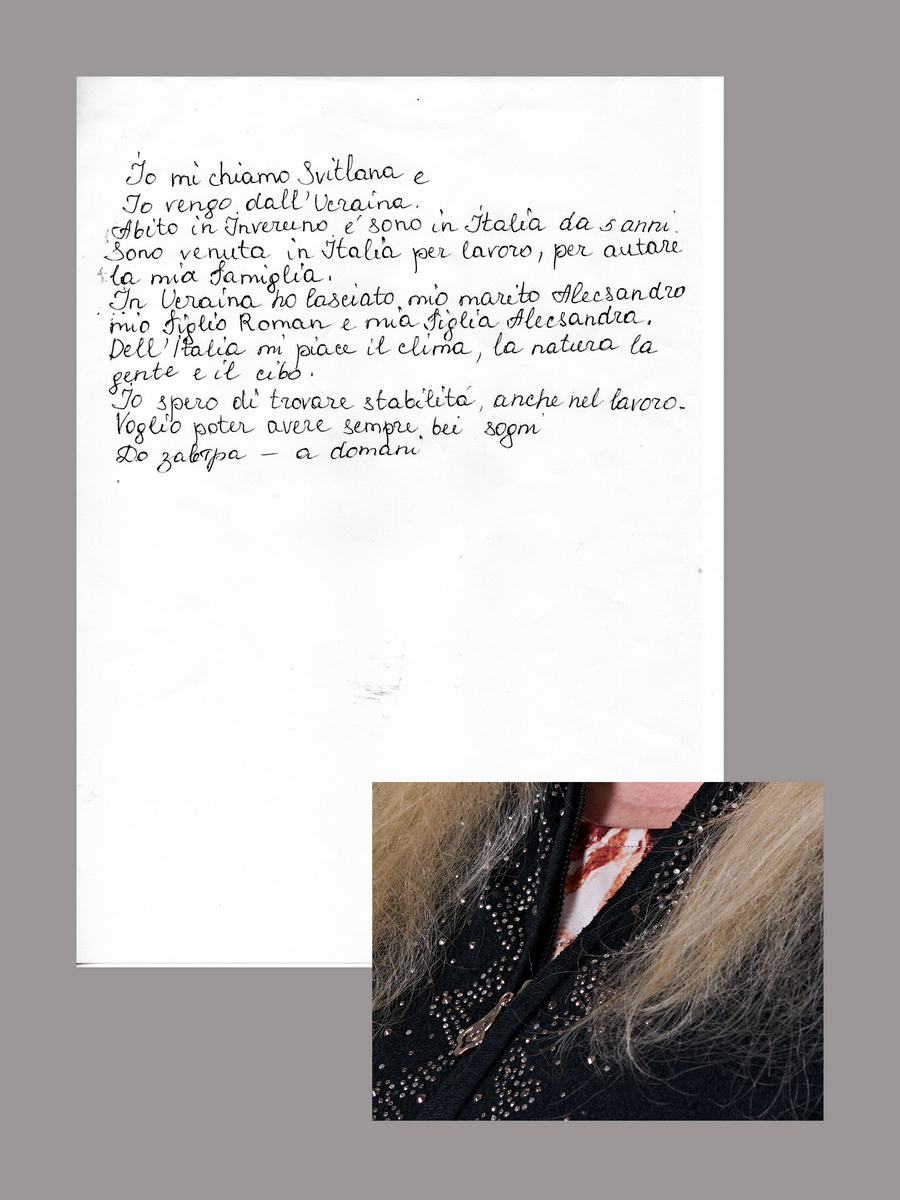 Io mi chiamo Svitlana e
Io vengo dall'Ucraina.
Abito in Inveruno é sono in Italia da 5 anni.
Sono venuta in Italia per lavoro, per autare
la mia famiglia.
In Ucraina ho lasciato mio marito Alecsandro
mio figlio Roman e mia figlia Alecsandra.
Dell'Italia mi piace il clima, la natura la
gente e il cibo.
Io spero di trovare stabilitá, anche nel lavoro.
Voglio poter avere sempre bei sogni
До завтра – a domani